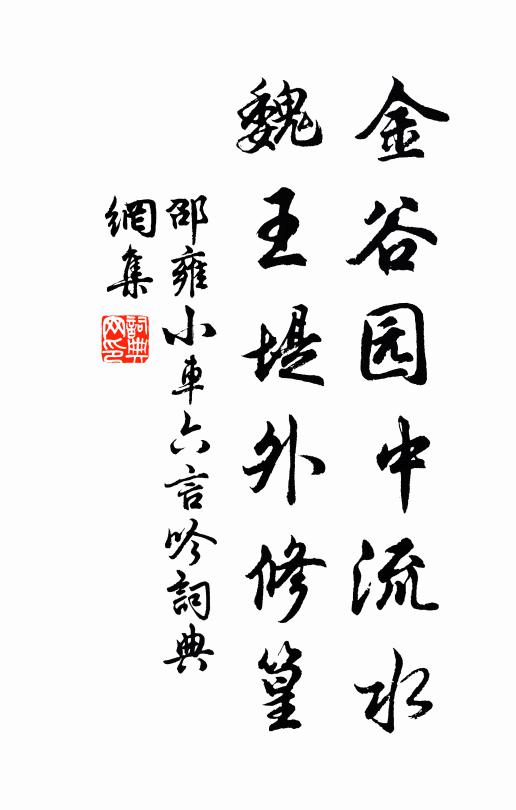 金谷园中流水
魏王堤外修篁
邵雍小車六言吟詞典
網集
詞典
网印